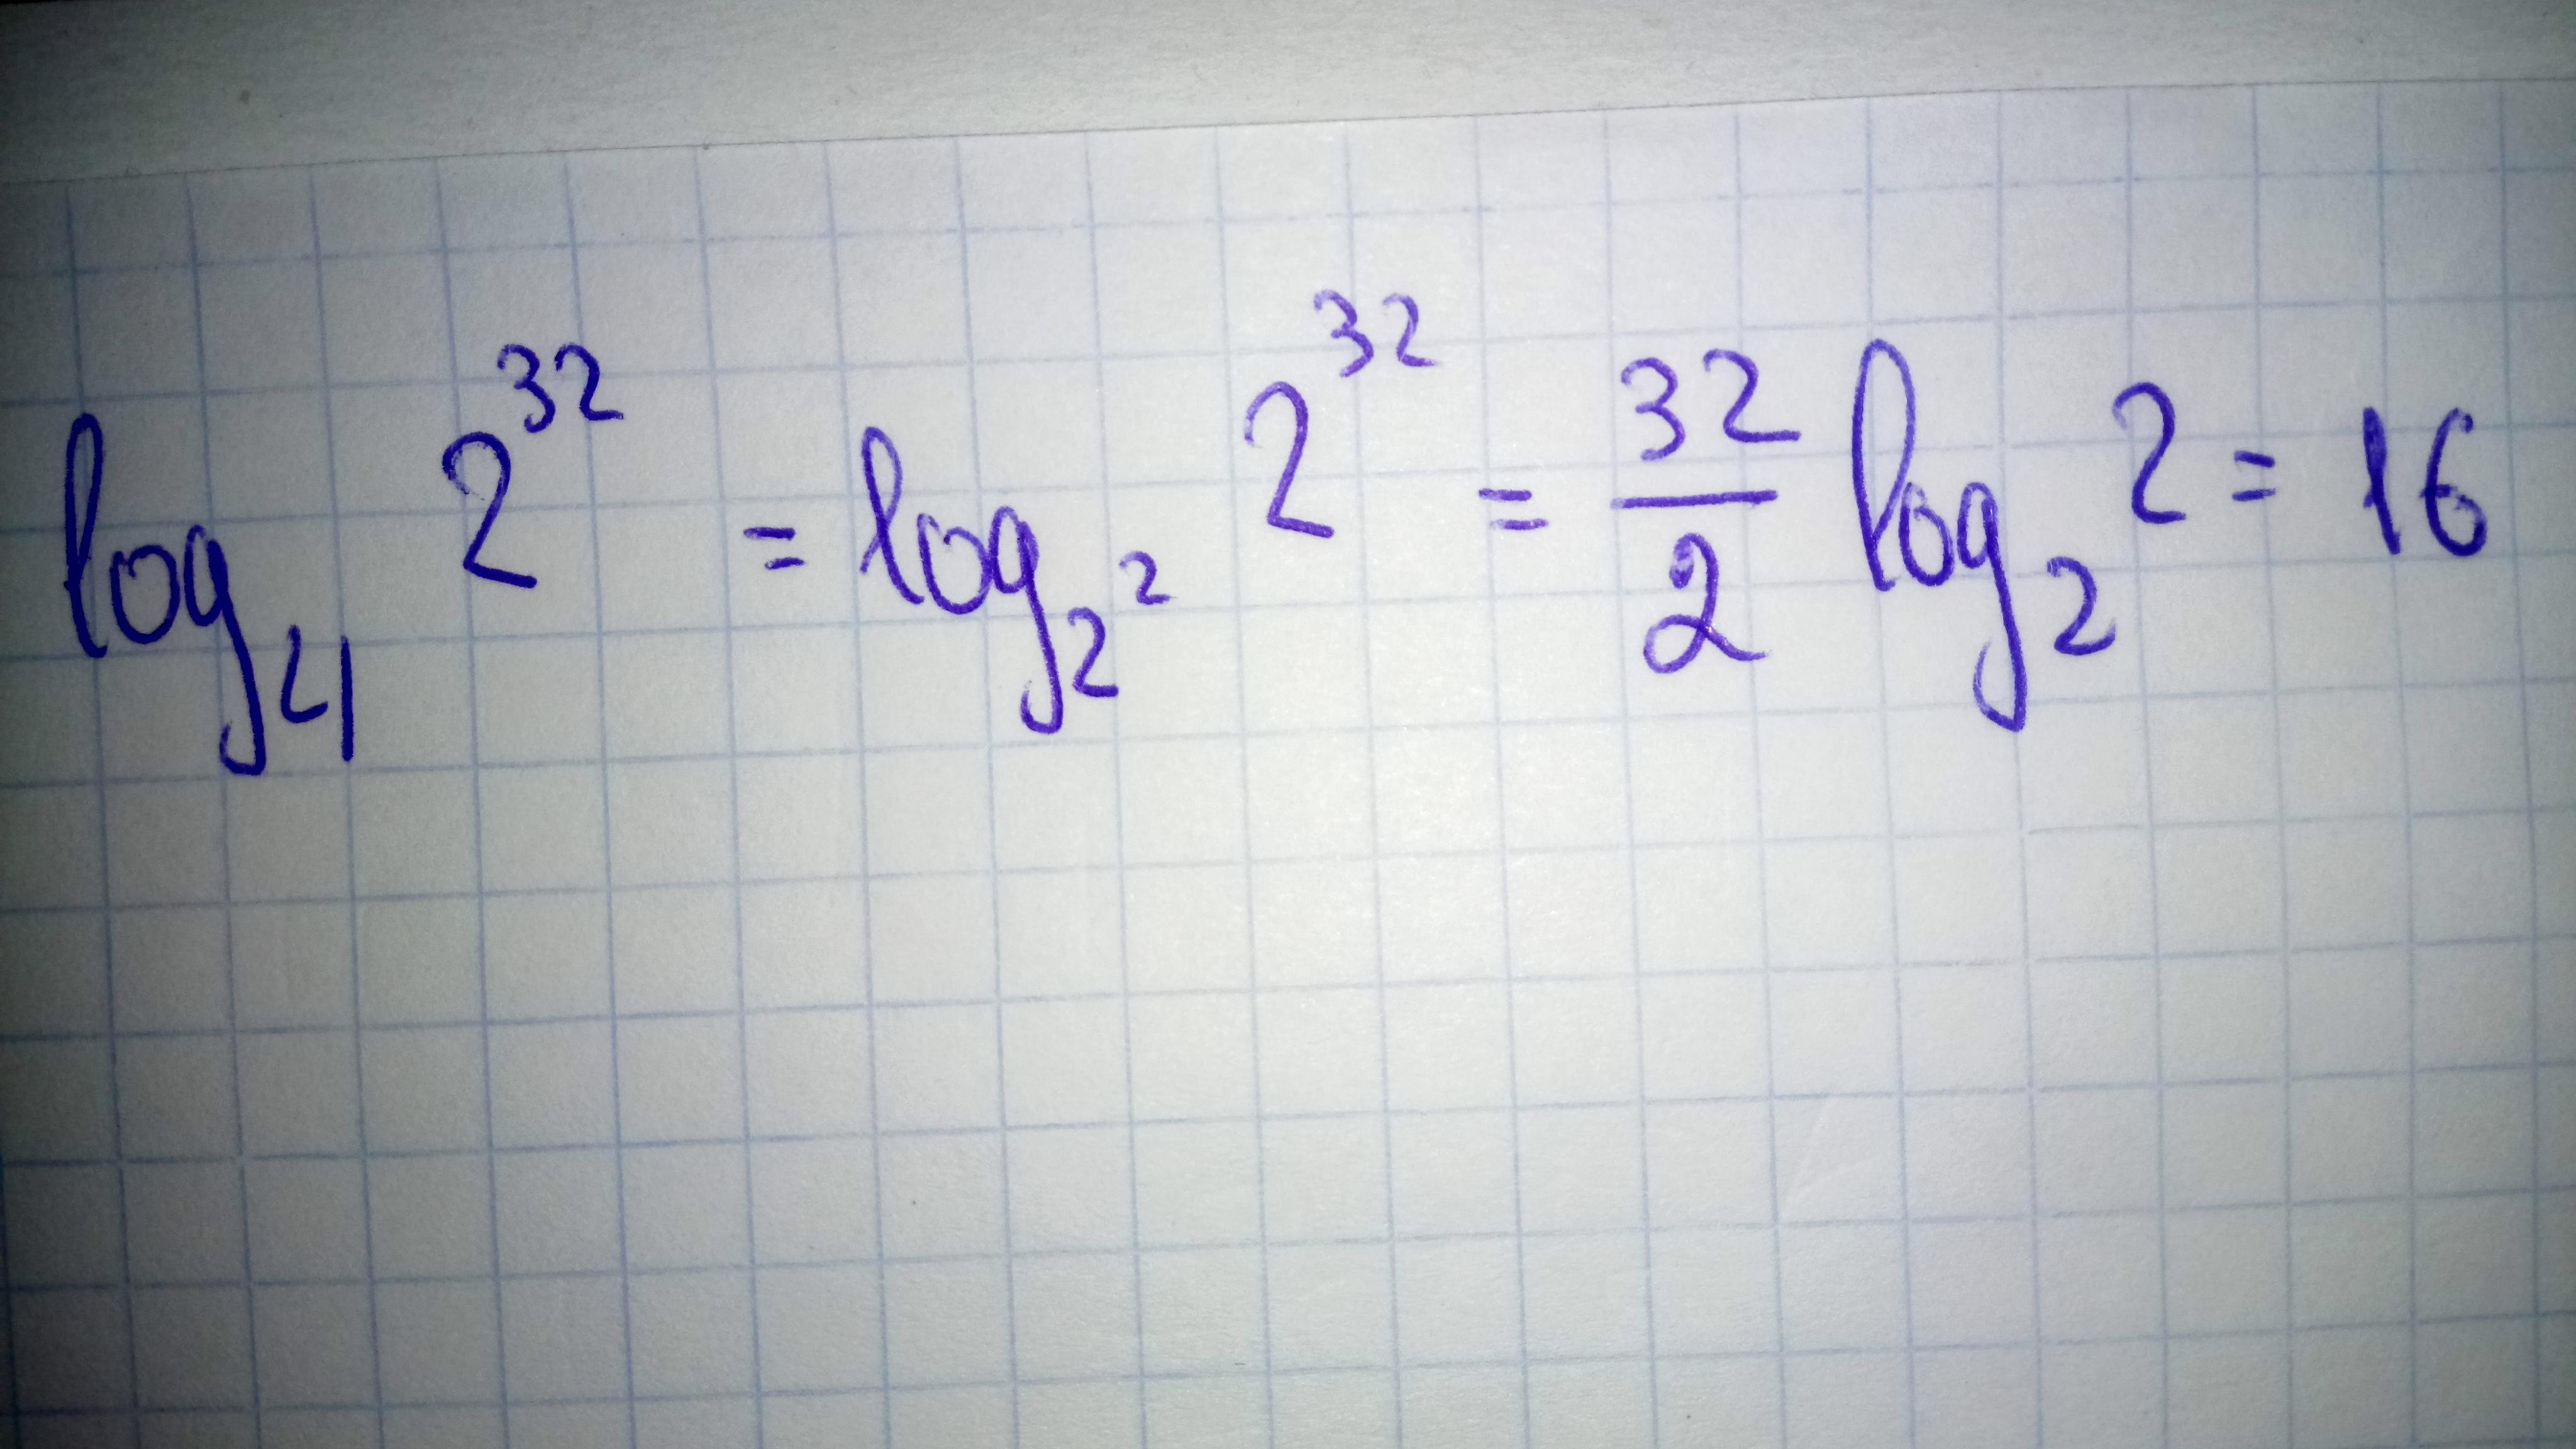 log₄ 2³² = log_{2²} 2³² = 32/2 log₂ 2 = 16